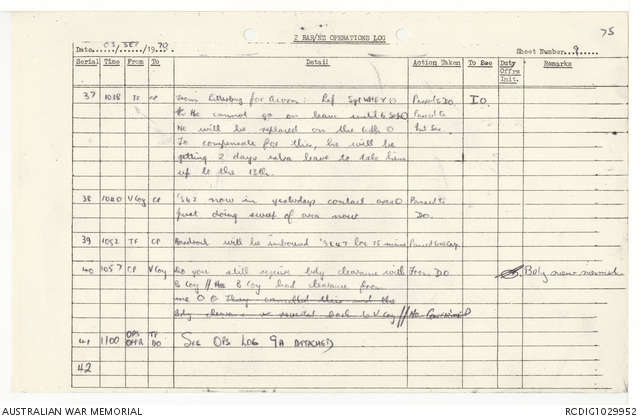 75
2 RAR/NZ OPERATIONS LOG
Date 03/SEP/1970 Sheet Number 9
Serial Time From To Detail Action Taken To See Duty Offrs Init. Remarks
37 1018 TF CP from for : Ref Spt O Passed to DO. IO.
He cannot go on leave until 6 Sep O Passed to
He will be replaced on the 6th O Int Sec
To compensate for this, he will be
getting 2 days extra leave to take him
up to the 13th.
38 1040 V Coy CP now in yesterdays contact area O Passed to
Just doing sweep of area now DO.
39 1052 TF CP will be inbound loc 15 mins
40 1057 CP V Coy Do you still require bdy clearance with From DO. Bdy now normal
B Coy // B Coy had clearance from
me O
bdy clearance back to V Coy //
41 1100 OPS OFFR TF DO See OPS LOG 9A ATTACHED
42
AUSTRALIAN WAR MEMORIAL RCDIG1029952